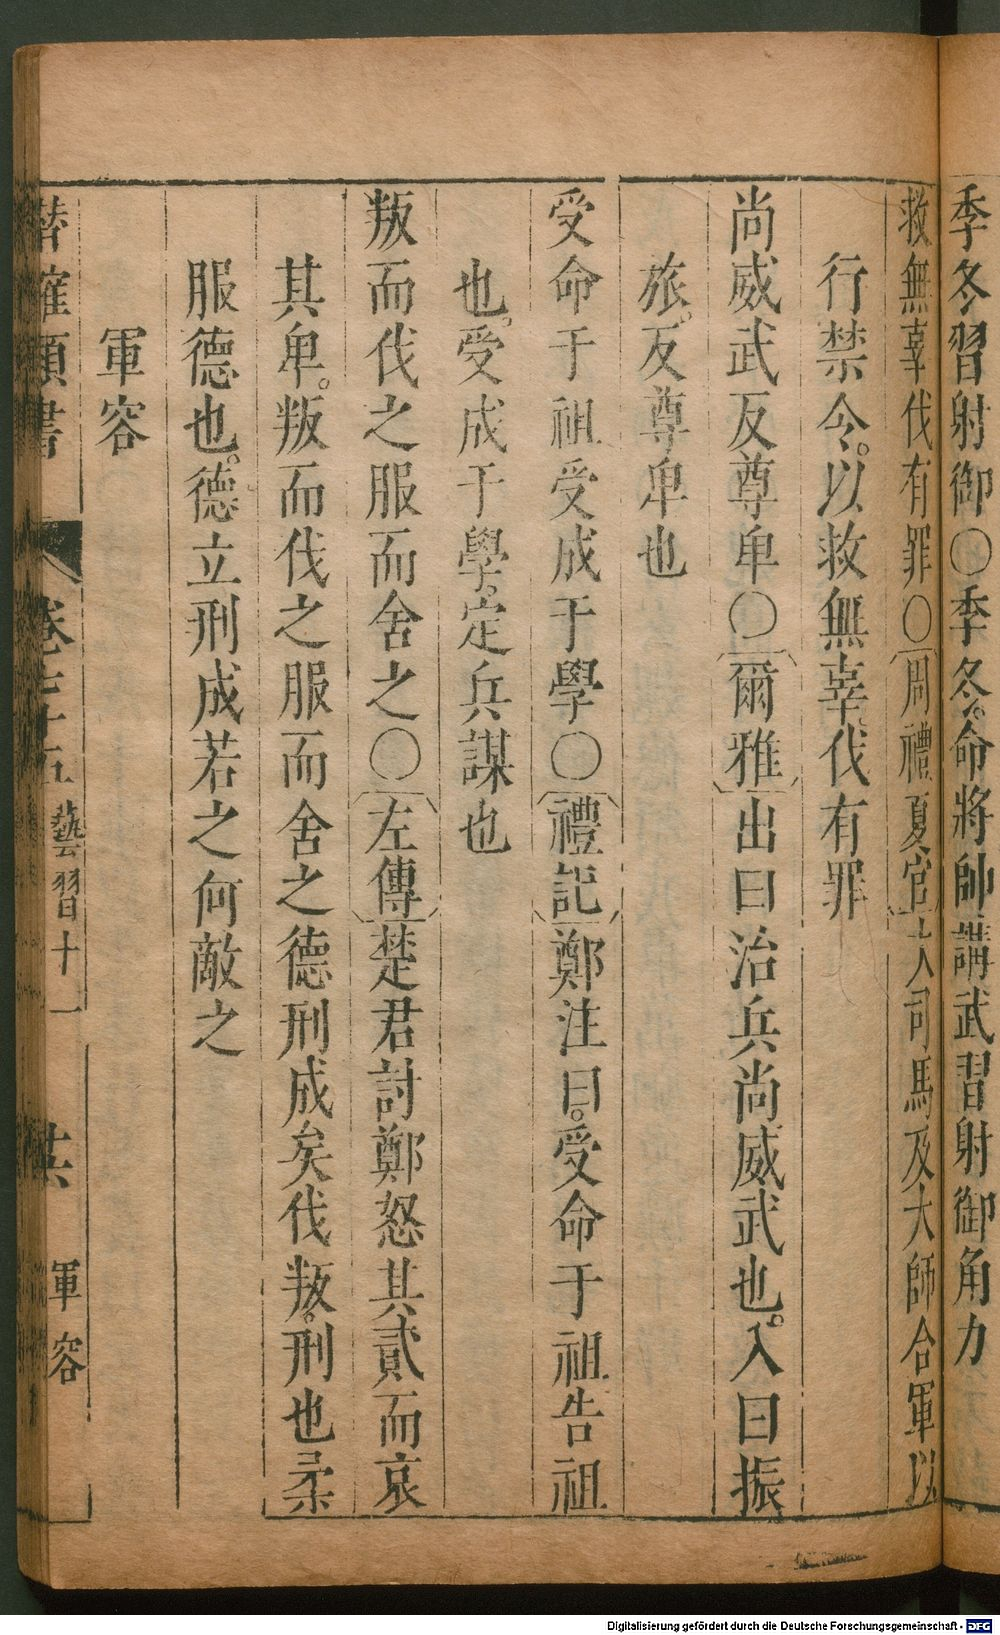 季冬習射御〇季冬。命將帥講武習射御角力
救無辜伐有罪〇周禮夏官大司馬及大師合軍以
行禁令。以救無辜。伐有罪
尚威武反尊卑〇爾雅出曰治兵尚威武也。入曰振
旅。反尊卑也
受命于祖受成于學〇禮記鄭注曰。受命于祖告祖
也。受成于學。定兵謀也
叛而伐之服而舍之〇左傳楚君討鄭怒其貳而哀
其卑。叛而伐之服而舍之德刑成矣伐叛。刑也柔
服德也。德立刑成若之何敵之
軍容
潛確類書 卷七十五 藝習十一 廿六 軍容
Digitalisierung gefördert durch die Deutsche Forschungsgemeinschaft - DFG